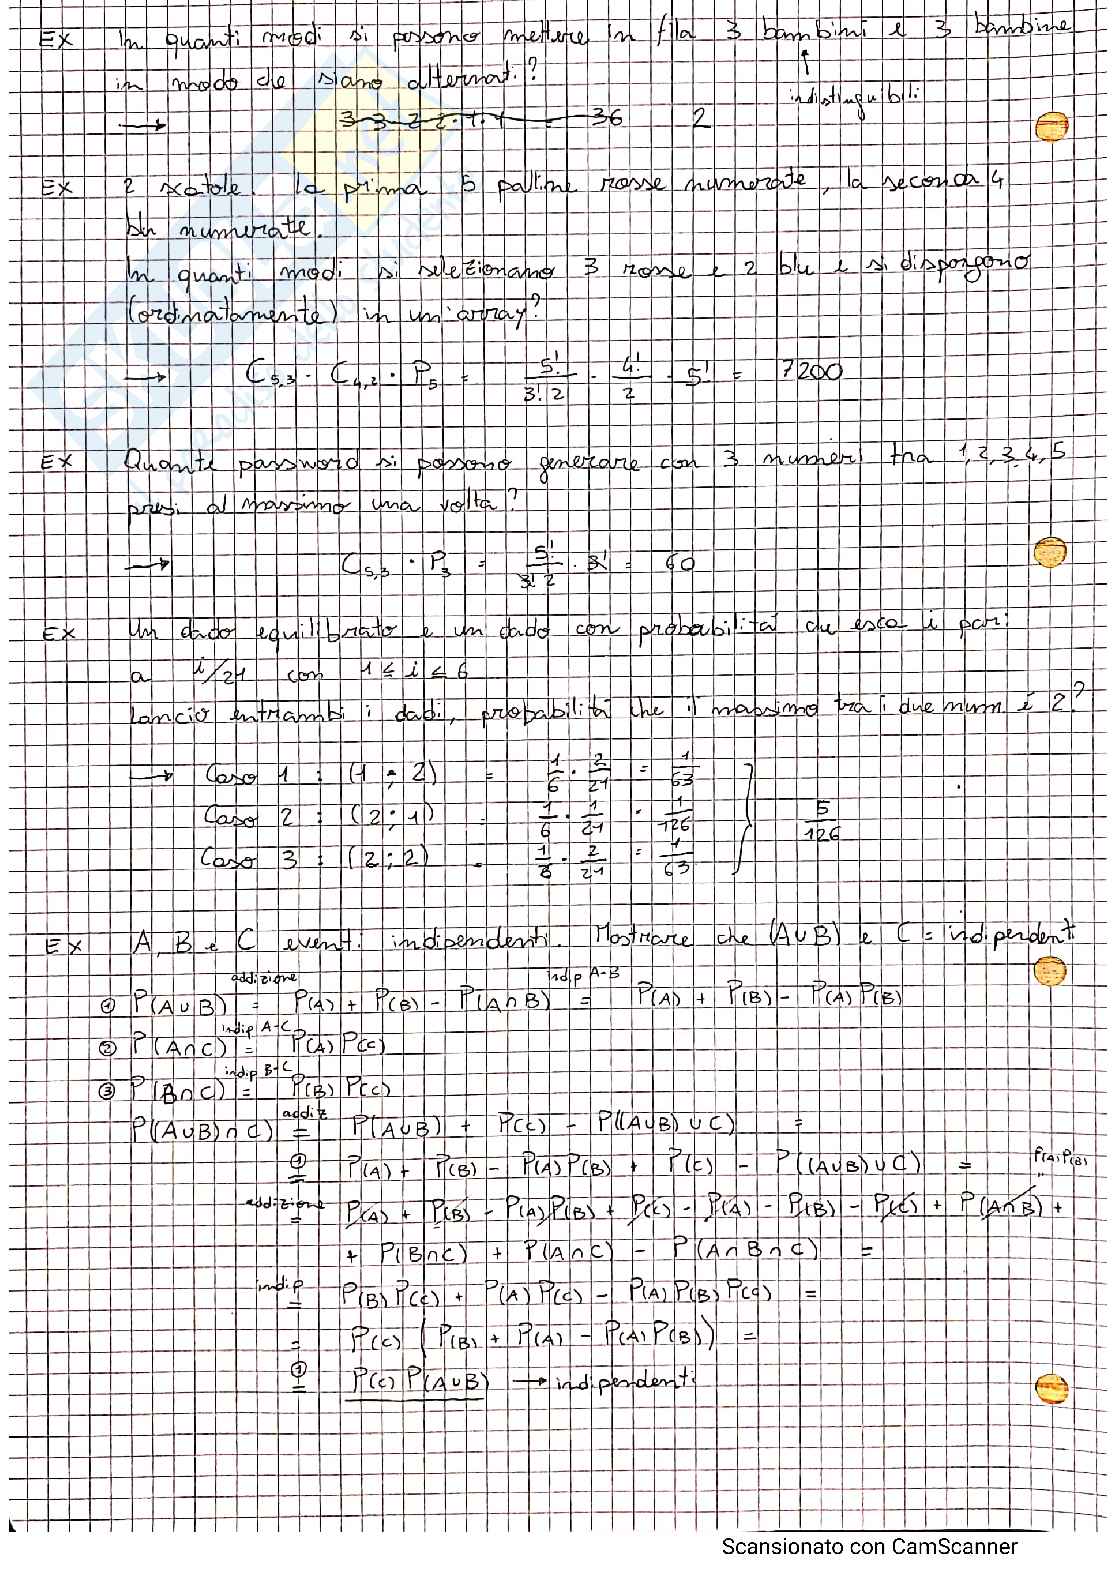 EX In quanti modi si possono mettere in fila 3 bambini e 3 bambine
in modo che siano alternati?
indistinguibili
→ 3·3·2·2·1·1 = 36 2
EX 2 scatole. la prima 5 palline rosse numerate, la seconda 4
blu numerate.
In quanti modi si selezionano 3 rosse e 2 blu e si dispongono
(ordinatamente) in un array?
→ C5,3 · C4,2 · P5 = 5!/3!2 · 4!/2 · 5! = 7200
EX Quante password si possono generare con 3 numeri tra 1,2,3,4,5
presi al massimo una volta?
→ C5,3 · P3 = 5!/3!2 · 3! = 60
EX Un dado equilibrato e un dado con probabilità che esca i pari
a i/21 con 1 ≤ i ≤ 6
Lancio entrambi i dadi, probabilità che il massimo tra i due num è 2?
→ Caso 1 : (1 ; 2) = 1/6 · 2/21 = 1/63
Caso 2 : (2 ; 1) = 1/6 · 1/21 = 1/126 5/126
Caso 3 : (2 ; 2) = 1/6 · 2/21 = 1/63
EX A, B e C eventi indipendenti. Mostrare che (A∪B) e C = indipendenti
addizione indip A-B
① P(A∪B) = P(A) + P(B) - P(A∩B) = P(A) + P(B) - P(A)P(B)
indip A-C
② P(A∩C) = P(A) P(C)
indip B-C
③ P(B∩C) = P(B) P(C)
P((A∪B)∩C) addiz = P(A∪B) + P(C) - P((A∪B)∪C) =
① = P(A) + P(B) - P(A)P(B) + P(C) - P((A∪B)∪C) = P(A)P(B)
addizione = P(A) + P(B) - P(A)P(B) + P(C) - P(A) - P(B) - P(C) + P(A∩B) +
+ P(B∩C) + P(A∩C) - P(A∩B∩C) =
indip = P(B)P(C) + P(A)P(C) - P(A)P(B)P(C) =
= P(C) (P(B) + P(A) - P(A)P(B)) =
① = P(C) P(A∪B) → indipendenti
Scansionato con CamScanner